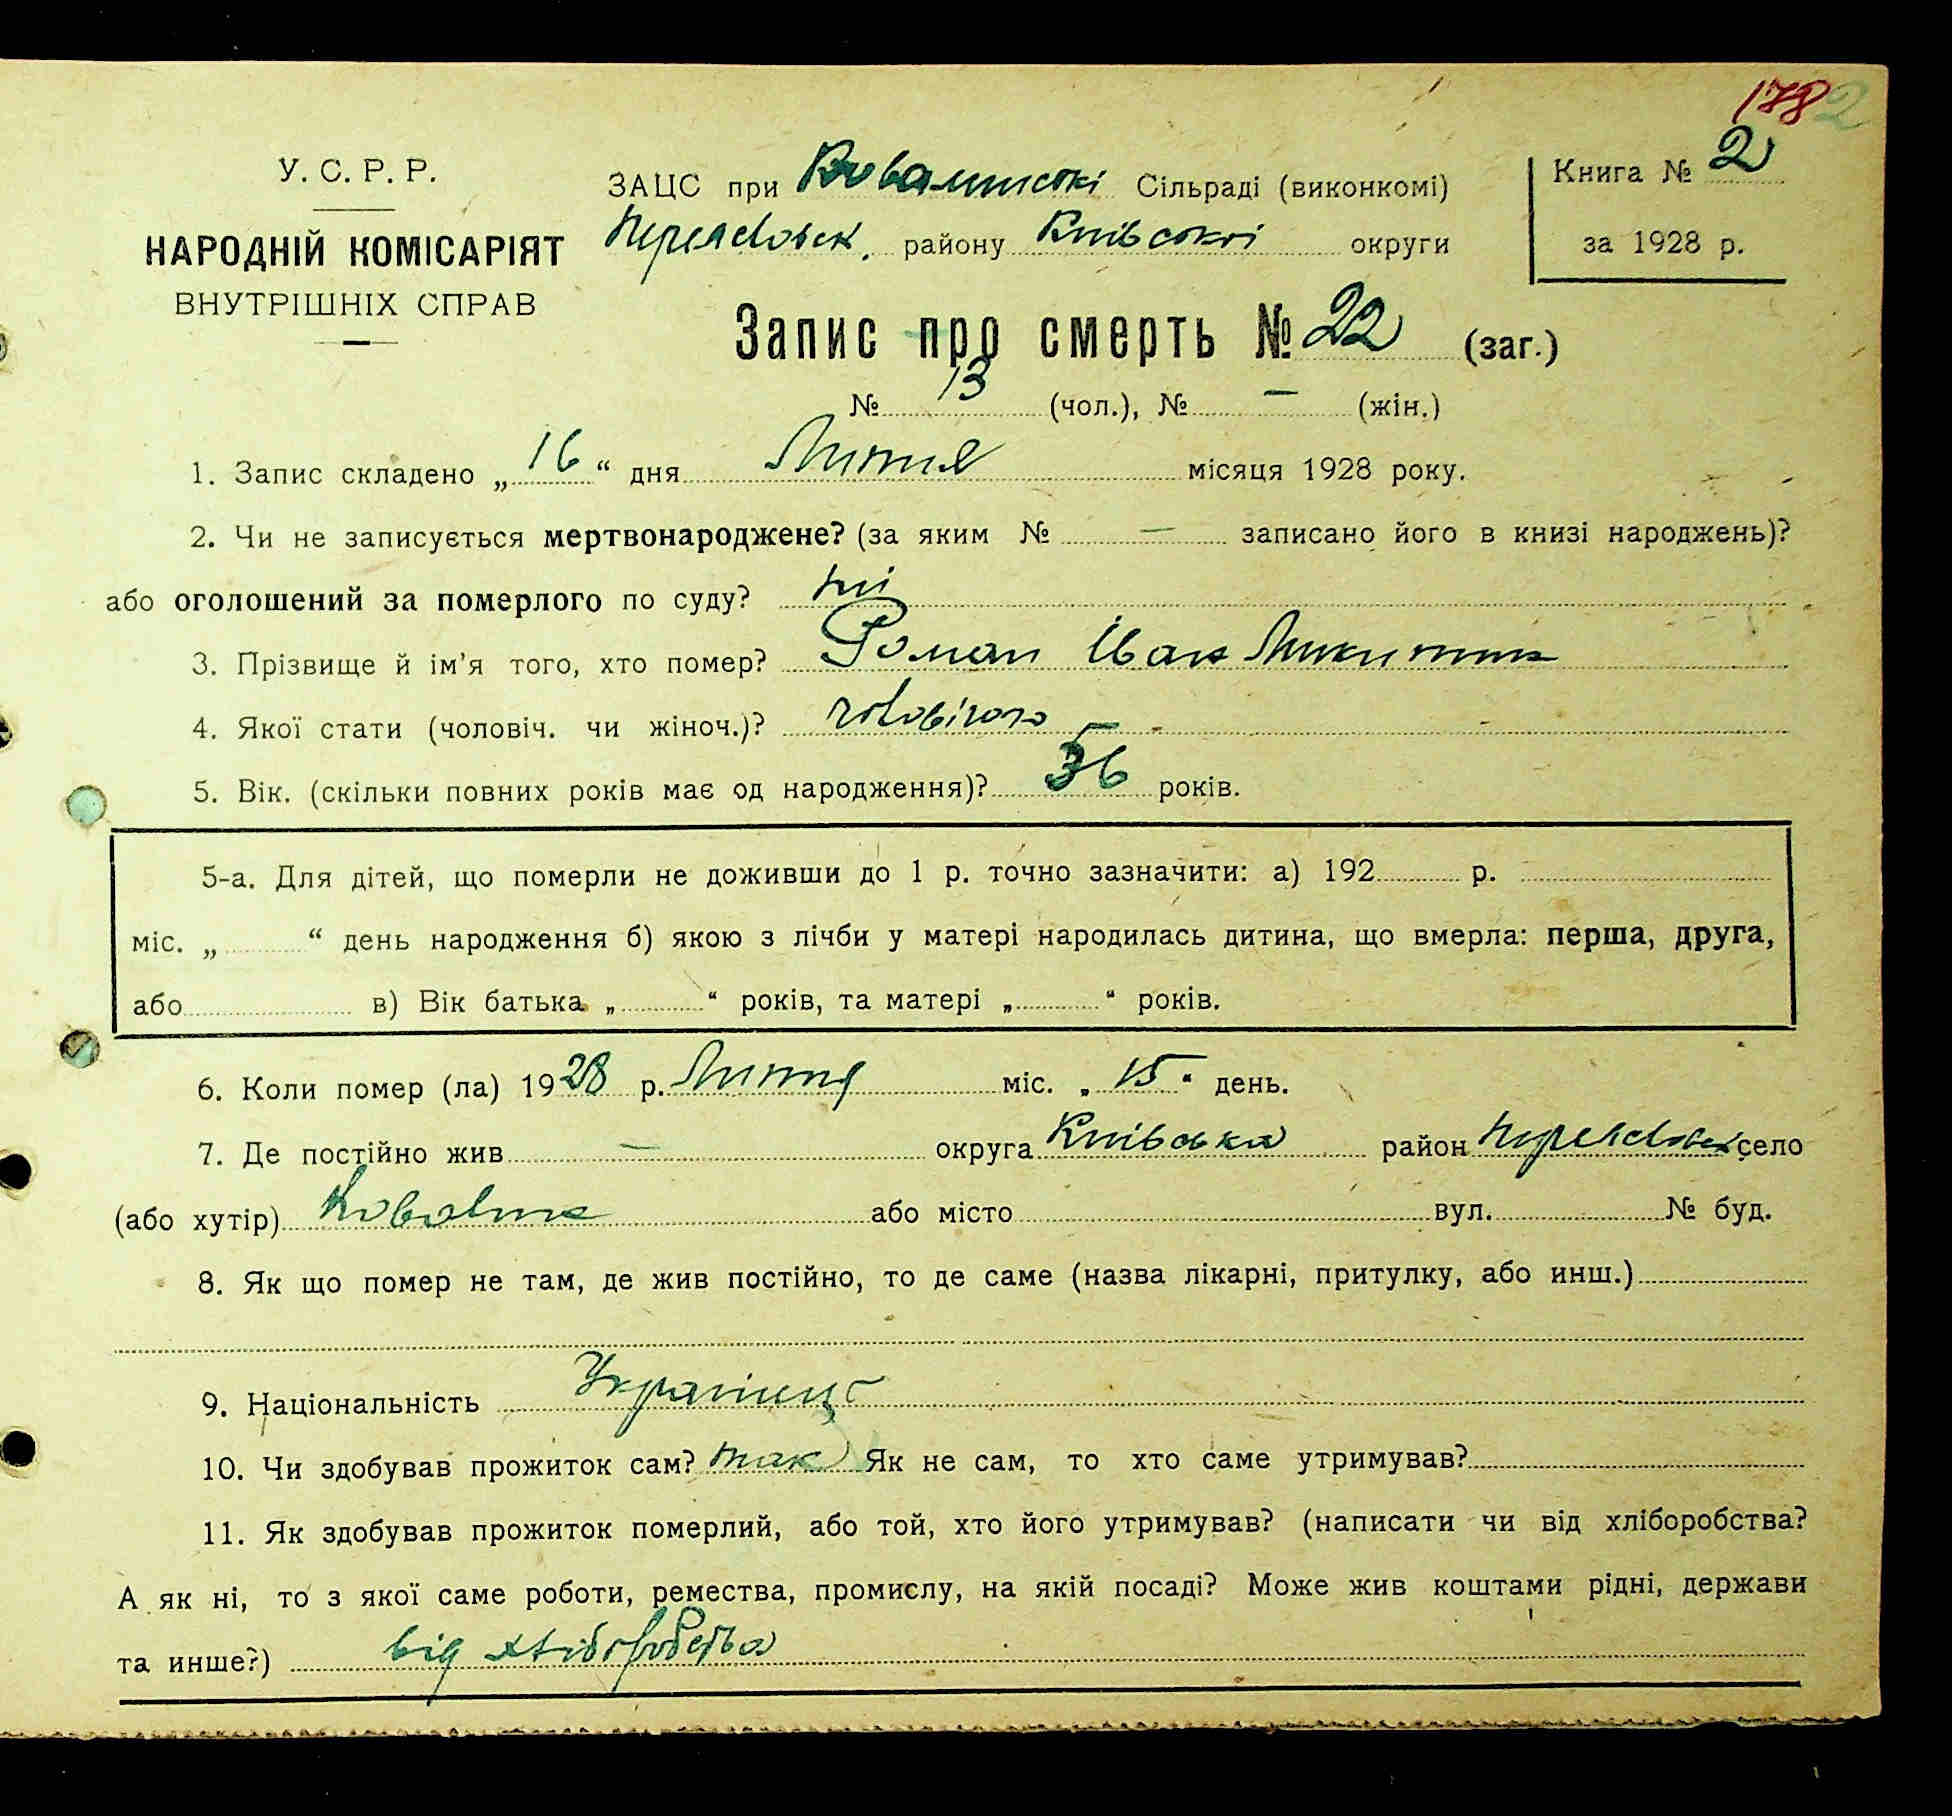 1782
У. С. Р. Р.
НАРОДНІЙ КОМІСАРІЯТ
ВНУТРІШНІХ СПРАВ
ЗАЦС при Ковалинскі Сільраді (виконкомі)
Переясловск. району Київської округи
Книга № 2
за 1928 р.
Запис про смерть № 22 (заг.)
№ 13 (чол.), № — (жін.)
1. Запис складено „16“ дня Липня місяця 1928 року.
2. Чи не записується мертвонароджене? (за яким № — записано його в книзі народжень)?
або оголошений за померлого по суду? ні
3. Прізвище й ім’я того, хто помер? Роман Іван Микитин
4. Якої стати (чоловіч. чи жіноч.)? чоловічого
5. Вік. (скільки повних років має од народження)? 56 років.
5-а. Для дітей, що померли не доживши до 1 р. точно зазначити: а) 192 р.
міс. „ “ день народження б) якою з лічби у матері народилась дитина, що вмерла: перша, друга,
або в) Вік батька „ “ років, та матері „ “ років.
6. Коли помер (ла) 1928 р. Липня міс. „15“ день.
7. Де постійно жив — округа Київська район Переясловск село
(або хутір) Ковалин або місто вул. № буд.
8. Як що помер не там, де жив постійно, то де саме (назва лікарні, притулку, або инш.)
9. Національність Українец
10. Чи здобував прожиток сам? так Як не сам, то хто саме утримував?
11. Як здобував прожиток померлий, або той, хто його утримував? (написати чи від хліборобства?
А як ні, то з якої саме роботи, ремества, промислу, на якій посаді? Може жив коштами рідні, держави
та инше?) від хліборобства